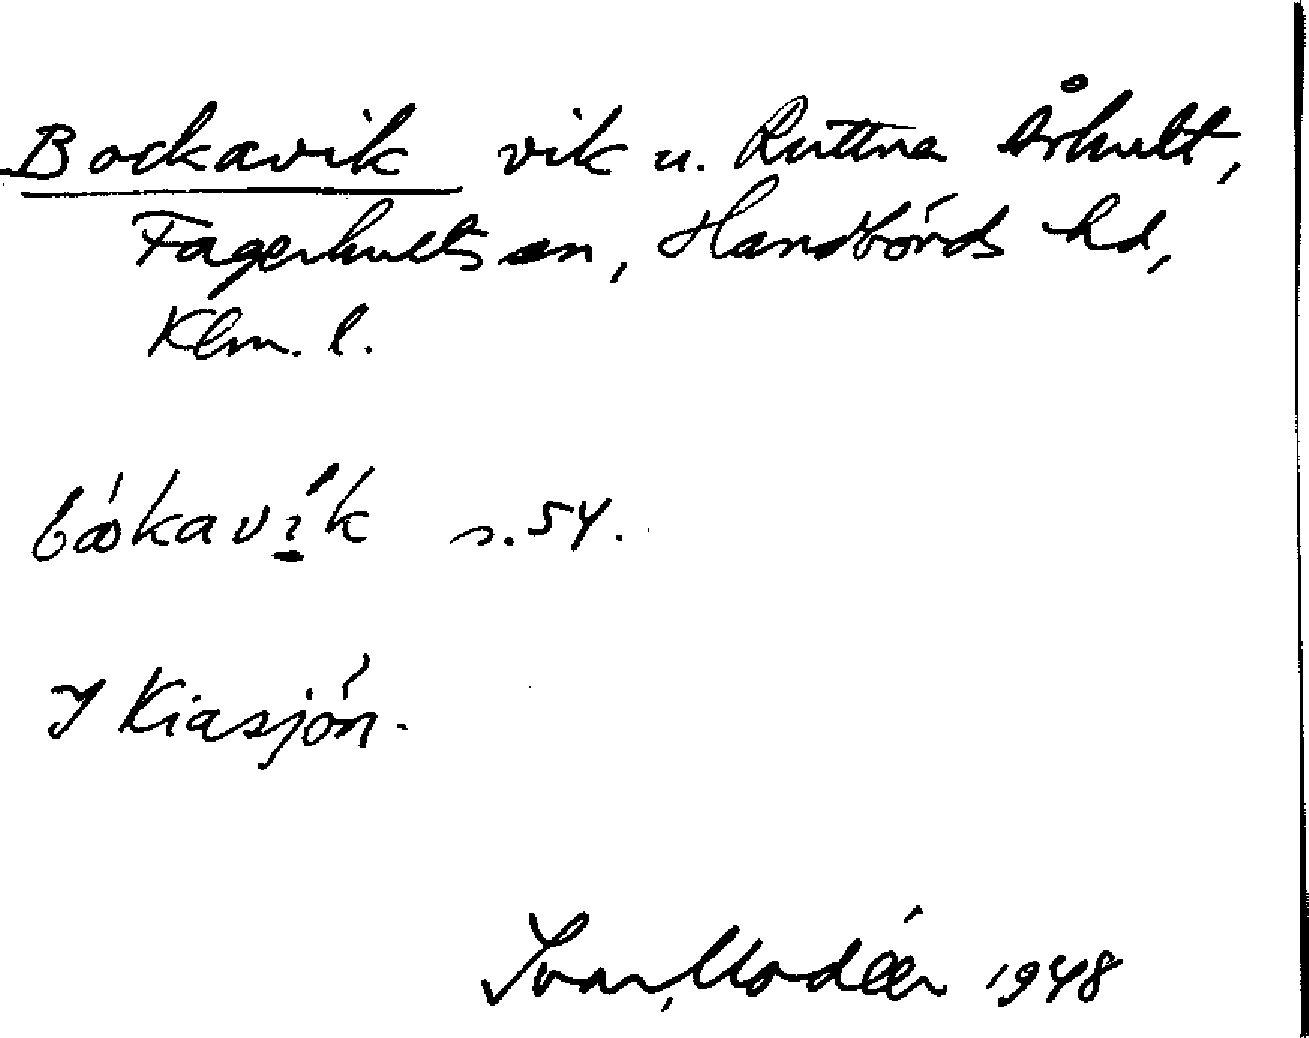 Bockavik vik u. Ruttna Århult,
Fagerhults sn, Handbörds hd,
Klm. l.
s. 54.
I Kiasjön.
Ivar Modéer 1948